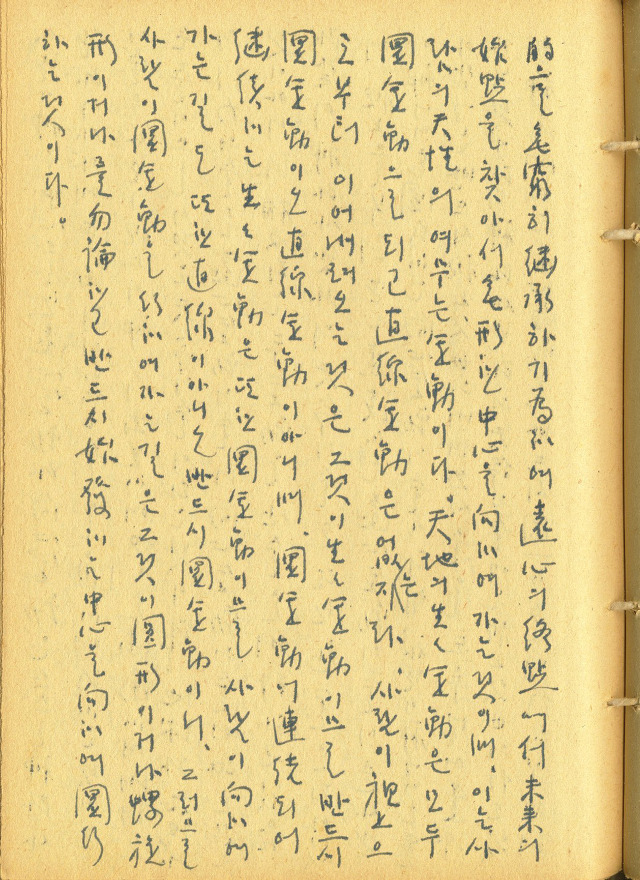 的으로 無窮히 継承하기 爲하여 遠心의 終點에서 未來의
始點을 찾아서 無形한 中心을 向하여 가는 것이며, 이는 사
람의 天性의 여무는 운動이다. 天地의 生生 운動은 모두
圓운動으로 되고 直線 운動은 없는지라, 사람이 祖上으
로부터 이어내려오는 것은 그것이 生生 운動이므로 반드시
圓운動이오 直線 운動이 아니며, 圓운動이 連続되어
継続하는 生生 운動은 또한 圓운動이므로 사람이 向하여
가는 길도 또한 直線이 아니오 반드시 圓운動이니, 그러므로
사람이 圓운動을 行하여 가는 길은 그것이 圓形이거나 螺旋
形이거나를 勿論하고 반드시 始發하는 中心을 向하여 圓行
하는 것이다。